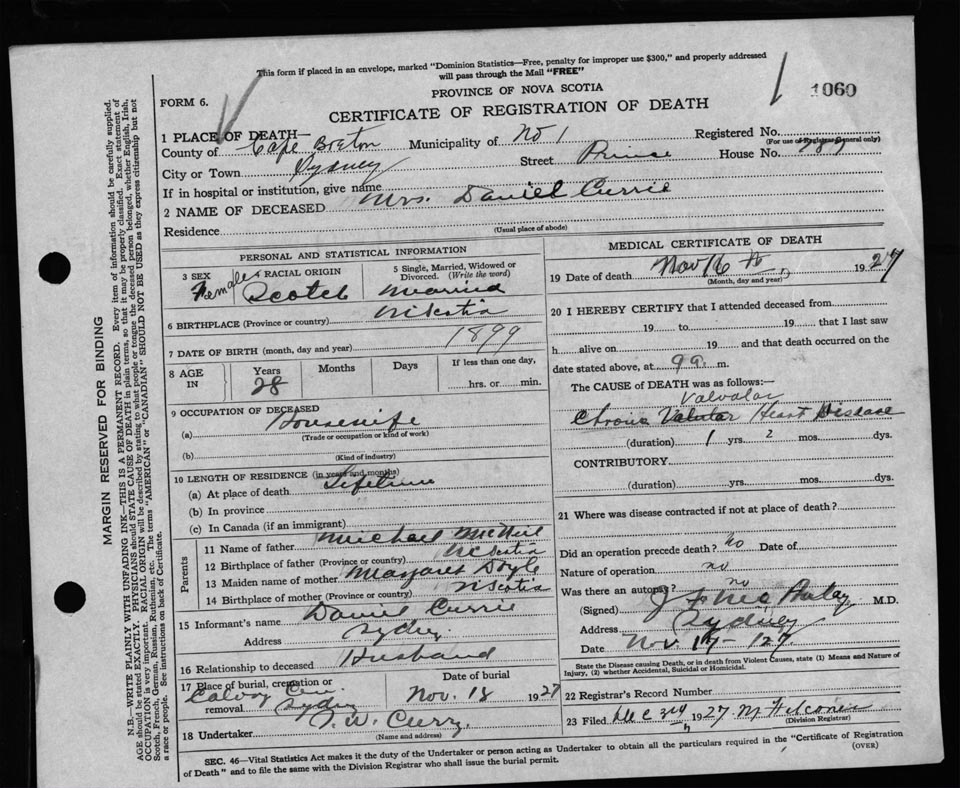 This form if placed in an envelope, marked "Dominion Statistics—Free, penalty for improper use $300," and properly addressed
will pass through the Mail "FREE"
PROVINCE OF NOVA SCOTIA
1060
FORM 6.
CERTIFICATE OF REGISTRATION OF DEATH
1 PLACE OF DEATH—
County of Cape Breton Municipality of No 1 Registered No.
(For use of Registrar General only)
City or Town Sydney Street Prince House No. 789
If in hospital or institution, give name
2 NAME OF DECEASED Mrs. Daniel Currie
Residence
(Usual place of abode)
PERSONAL AND STATISTICAL INFORMATION
3 SEX Female
4 RACIAL ORIGIN Scotch
5 Single, Married, Widowed or Divorced. (Write the word) Married
6 BIRTHPLACE (Province or country) N Scotia
7 DATE OF BIRTH (month, day and year) 1899
8 AGE IN Years 28 Months Days If less than one day, hrs. or min.
9 OCCUPATION OF DECEASED
(a) Housewife
(Trade or occupation or kind of work)
(b)
(Kind of industry)
10 LENGTH OF RESIDENCE (in years and months)
(a) At place of death Lifetime
(b) In province
(c) In Canada (if an immigrant)
Parents
11 Name of father Michael McNeil
12 Birthplace of father (Province or country) N Scotia
13 Maiden name of mother Margaret Doyle
14 Birthplace of mother (Province or country) N Scotia
15 Informant's name Daniel Currie
Address Sydney
16 Relationship to deceased Husband
17 Place of burial, cremation or removal Date of burial
Calvary Cem. Sydney Nov. 18 1927
18 Undertaker T. W. Curry
(Name and address)
MEDICAL CERTIFICATE OF DEATH
19 Date of death Nov 16 th 1927
(Month, day and year)
20 I HEREBY CERTIFY that I attended deceased from
19 to 19 that I last saw
h alive on 19 and that death occurred on the
date stated above, at 9 a. m.
The CAUSE of DEATH was as follows:—
Valvular
Chronic Valvular Heart Disease
(duration) 1 yrs. 2 mos. dys.
CONTRIBUTORY
(duration) yrs. mos. dys.
21 Where was disease contracted if not at place of death?
Did an operation precede death? no Date of
Nature of operation no
Was there an autopsy? no
(Signed) M.D.
Address Sydney
Date Nov. 17 - 127
State the Disease causing Death, or in death from Violent Causes, state (1) Means and Nature of
Injury, (2) whether Accidental, Suicidal or Homicidal.
22 Registrar's Record Number
23 Filed Dec 1927
(Division Registrar)
SEC. 46—Vital Statistics Act makes it the duty of the Undertaker or person acting as Undertaker to obtain all the particulars required in the "Certificate of Registration
of Death" and to file the same with the Division Registrar who shall issue the burial permit.
(OVER)
MARGIN RESERVED FOR BINDING
N.B.—WRITE PLAINLY WITH UNFADING INK—THIS IS A PERMANENT RECORD. Every item of information should be carefully supplied.
AGE should be stated EXACTLY. PHYSICIANS should STATE CAUSE OF DEATH in plain terms, so that it may be properly classified. Exact statement of
OCCUPATION is very important. RACIAL ORIGIN will be described by stating to what people or tongue the deceased person belonged, whether English, Irish,
Scotch, French, German, Russian, Ruthenian, etc. The terms "AMERICAN" or "CANADIAN" SHOULD NOT BE USED as they express citizenship but not
a race or people. See instructions on back of Certificate.